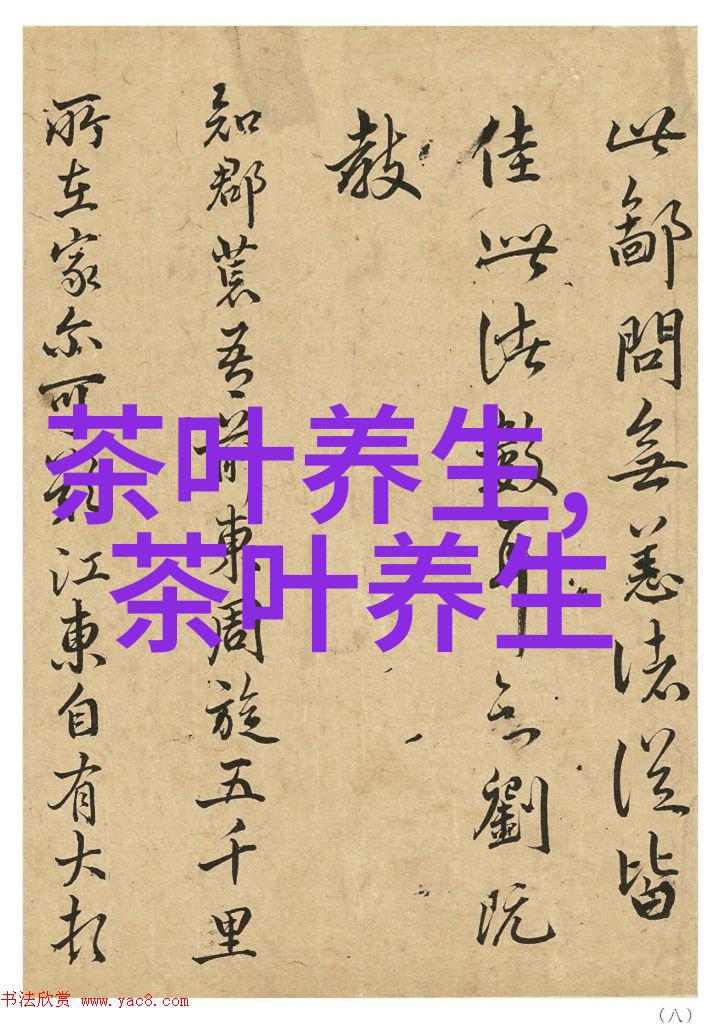 茶叶养生,
茶叶养生
此鄱問無恙諸從皆
佳此數耳劉
敎
知郡荒吾前東周旋五千里
所在家尓可歎江東自有大
书法欣赏 www.yac8.com
（八）